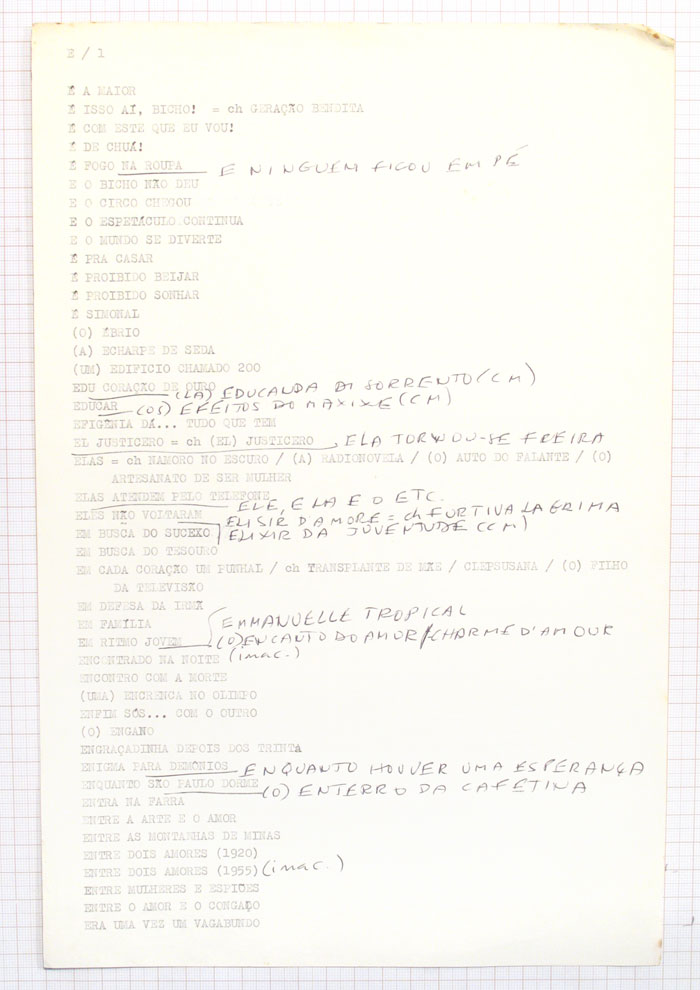 E / 1
É A MAIOR
É ISSO AÍ, BICHO! = ch GERAÇÃO BENDITA
É COM ESTE QUE EU VOU!
É DE CHUÁ!
É FOGO NA ROUPA E NINGUEM FICOU EM PÉ
E O BICHO NÃO DEU
E O CIRCO CHEGOU
E O ESPETÁCULO CONTINUA
E O MUNDO SE DIVERTE
É PRA CASAR
É PROIBIDO BEIJAR
É PROIBIDO SONHAR
É SIMONAL
(O) ÉBRIO
(A) ECHARPE DE SEDA
(UM) EDIFICIO CHAMADO 200
EDU CORAÇÃO DE OURO (LA) EDUCANDA DI SORRENTO (CM)
EDUCAR (OS) EFEITOS DO MAXIXE (CM)
EFIGÊNIA DÁ... TUDO QUE TEM
EL JUSTICERO = ch (EL) JUSTICERO ELA TORNOU-SE FREIRA
ELAS = ch NAMORO NO ESCURO / (A) RADIONOVELA / (O) AUTO DO FALANTE / (O)
ARTESANATO DE SER MULHER
ELAS ATENDEM PELO TELEFONE ELE, ELA E O ETC.
ELES NÃO VOLTARAM ELISIR D'AMORE = ch FURTIVA LAGRIMA
EM BUSCA DO SUCEXO ELIXIR DA JUVENTUDE (CM)
EM BUSCA DO TESOURO
EM CADA CORAÇÃO UM PUNHAL / ch TRANSPLANTE DE MÃE / CLEPSUSANA / (O) FILHO
DA TELEVISÃO
EM DEFESA DA IRMÃ
EM FAMÍLIA EMMANUELLE TROPICAL
EM RITMO JOVEM (O) ENCANTO DO AMOR / CHARME D'AMOUR
ENCONTRADO NA NOITE (inac.)
ENCONTRO COM A MORTE
(UMA) ENCRENCA NO OLIMPO
ENFIM SÓS... COM O OUTRO
(O) ENGANO
ENGRAÇADINHA DEPOIS DOS TRINTA
ENIGMA PARA DEMÔNIOS ENQUANTO HOUVER UMA ESPERANÇA
ENQUANTO SÃO PAULO DORME (O) ENTERRO DA CAFETINA
ENTRA NA FARRA
ENTRE A ARTE E O AMOR
ENTRE AS MONTANHAS DE MINAS
ENTRE DOIS AMORES (1920)
ENTRE DOIS AMORES (1955) (inac.)
ENTRE MULHERES E ESPIÕES
ENTRE O AMOR E O CONGAÇO
ERA UMA VEZ UM VAGABUNDO